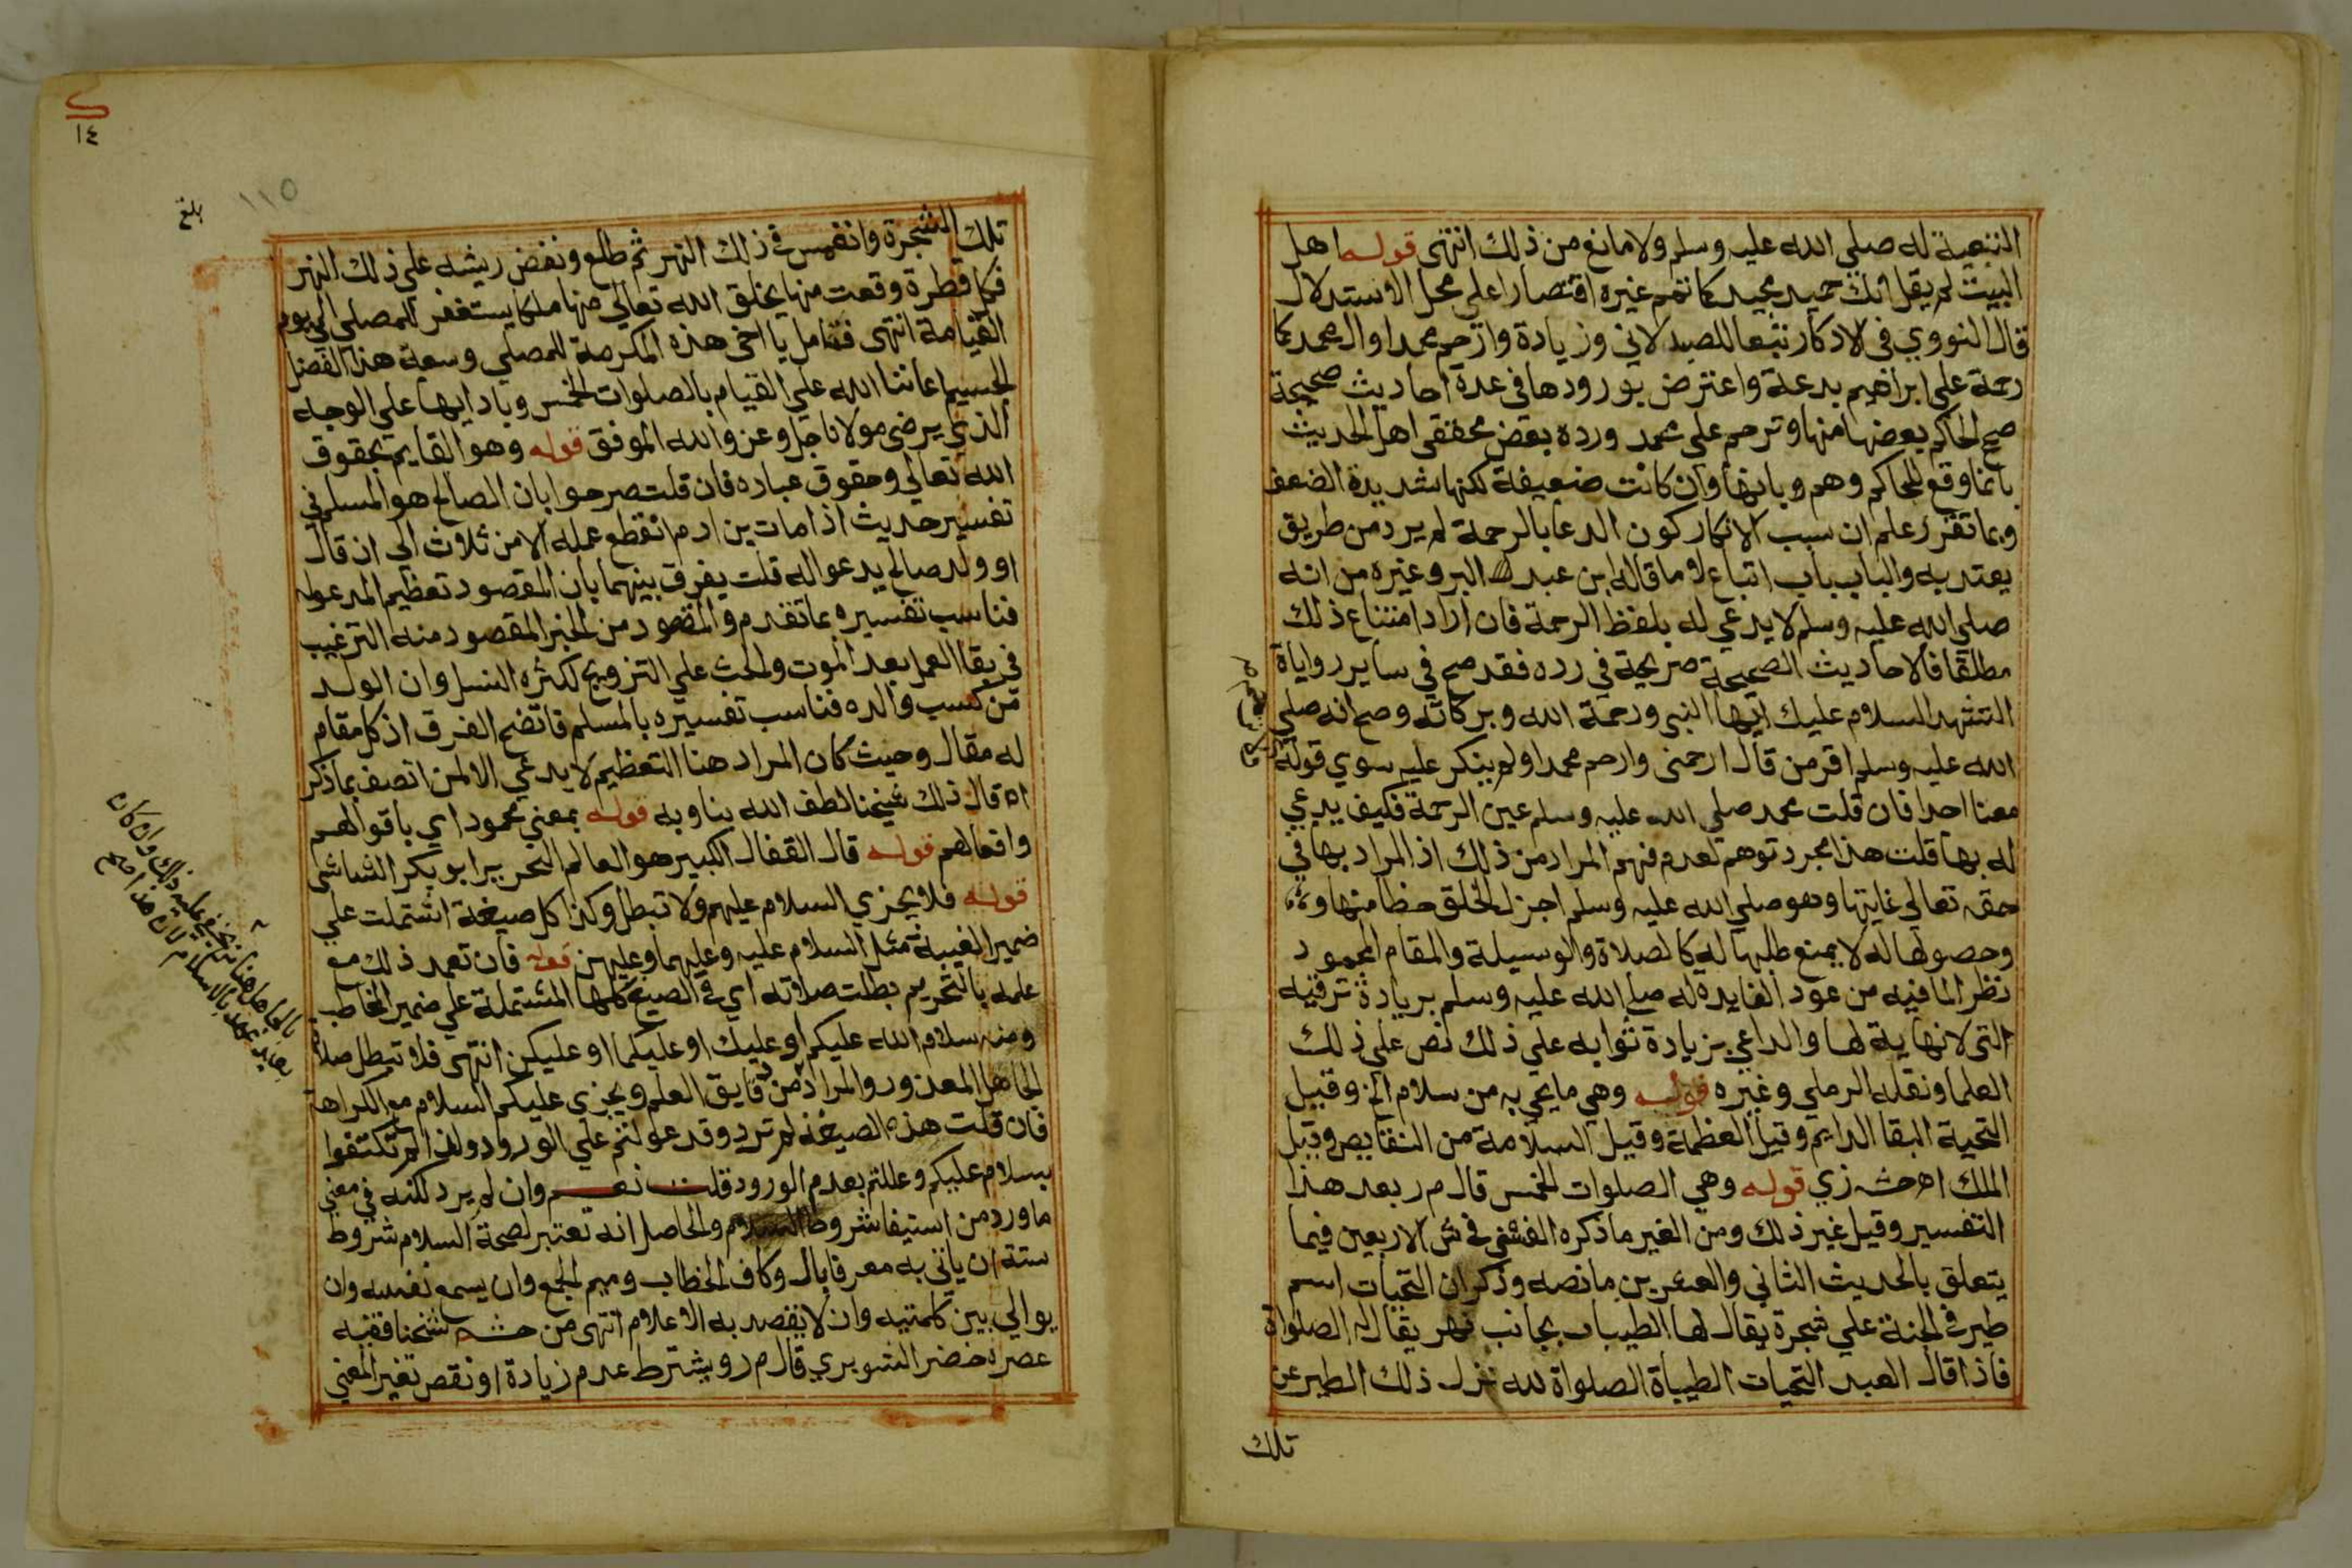 التبعية له صلى الله عليه وسلم ولا مانع من ذلك انتهى قوله اهل
البيت لم يقل انك حميد مجيد كما تمم غيره اقتصارا على محل الاستدلال
قال النووي في الاذكار تبعا للصيدلاني وزيادة وارحم محمدا وال محمد كما
رحمة على ابراهيم بدعة واعترض بورودها في عدة احاديث صحيحة
صح الحاكم بعضها منها وترحم على محمد ورده بعض محققي اهل الحديث
بانما وقع للحاكم وهم وبانها وان كانت ضعيفة لكنها شديدة الضعف
وبما تقرر علم ان سبب الانكار كون الدعا بالرحمة لم يرد من طريق
يعتد به والباب باب اتباع لا ما قاله ابن عبد البر وغيره من انه
صلى الله عليه وسلم لا يدعى له بلفظ الرحمة فان اراد امتناع ذلك
مطلقا فالاحاديث الصحيحة صريحة في رده فقد صح في ساير رواياة
التشهد السلام عليك ايها النبى ورحمة الله وبركاته وصح انه صلى
الله عليه وسلم اقر من قال ارحمنى وارحم محمدا ولم ينكر عليه سوي قوله
معنا احدا فان قلت محمد صلى الله عليه وسلم عين الرحمة فكيف يدعي
له بها قلت هذا مجرد توهم لعدم فهم المراد من ذلك اذ المراد بها في
حقه تعالى غايتها وهو صلى الله عليه وسلم اجزل الخلق حظا منها
وحصولها له لا يمنع طلبها له كالصلاة والوسيلة والمقام المحمود
نظرا لما فيه من عود الفايدة له صلى الله عليه وسلم بزيادة ترقيه
التى لا نهاية لها والداعي بزيادة ثوابه على ذلك نص على ذلك
العلما ونقله الرملي وغيره قوله وهي ما يحي به من سلام الخ وقيل
التحية البقا الدايم وقيل العظمة وقيل السلامة من النقايص وقيل
الملك اه حش زي قوله وهي الصلوات الخمس قال م ر بعد هذا
التفسير وقيل غير ذلك ومن الغير ما ذكره الفشنى في ش الاربعين فيما
يتعلق بالحديث الثاني والعشرين ما نصه وذكر ان التحيات اسم
طير في الجنة على شجرة يقال لها الطيبات بجانب نهر يقال له الصلواة
فاذا قال العبد التحيات الطيباة الصلواة لله نزل ذلك الطير عن
تلك
١٤
١١٥
بلغ
تلك الشجرة وانغمس في ذلك النهر ثم طلع ونفض ريشه على ذلك النهر
فكل قطرة وقعت منها يخلق الله تعالى منها ملكا يستغفر للمصلي الى يوم
القيامة انتهى فتامل يا اخي هذه المكرمة للمصلي وسعة هذا الفضل
الجسيم اعاننا الله على القيام بالصلوات الخمس وبادابها على الوجه
الذي يرضى مولانا جل وعز والله الموفق قوله وهو القايم بحقوق
الله تعالى وحقوق عباده فان قلت صرحوا بان الصالح هو المسلم في
تفسير حديث اذا مات بن ادم انقطع عمله الا من ثلاث الى ان قال
او ولد صالح يدعو له قلت يفرق بينهما بان المقصود تعظيم المدعو له
فناسب تفسيره بما تقدم والمقصود من الخبر المقصود منه الترغيب
في بقا العمل بعد الموت والحث على التزويج لكثره النسل وان الولد
من كسب والده فناسب تفسيره بالمسلم فاتضح الفرق اذ كل مقام
له مقال وحيث كان المراد هنا التعظيم لا يدعي الا لمن اتصف بما ذكر
اه قال ذلك شيخنا لطف الله بنا وبه قوله بمعني محمود اي باقوالهم
وافعالهم قوله قال القفال الكبير هو العالم النحرير ابو بكر الشاشى
قوله فلا يجزي السلام عليهم ولا تبطل وكذا كل صيغة اشتملت على
ضمير الغيبة مثل السلام عليه وعليهما وعليهن قوله فان تعمد ذلك مع
علمه بالتحريم بطلت صلاته اي في الصيغ كلها المشتملة على ضمير الخاطب
ومنه سلام الله عليكم او عليك او عليكما او عليكن انتهى فلا تبطل صلاة
الجاهل المعذور والمراد من دقايق العلم ويجزي عليكم السلام مع الكراهة
فان قلت هذه الصيغة لم ترد وقد عولتم على الورود ولهذا لم تكتفوا
بسلام عليكم وعللتم بعدم الورود قلت نعم وان لم يرد لكنه في معني
ما ورد من استيفا شروط السلام والحاصل انه تعتبر لصحة السلام شروط
ستة ان ياتي به معرفا بال وكاف الخطاب وميم الجمع وان يسمع نفسه وان
يوالي بين كلمتيه وان لا يقصد به الاعلام انتهى من حش شيخنا فقيه
عصره خضر الشوبري قال م ر ويشترط عدم زيادة او نقص تغير المعني